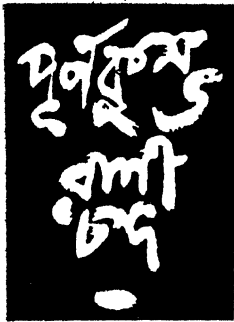 পূর্ণকুম্ভ
রানী
চন্দ